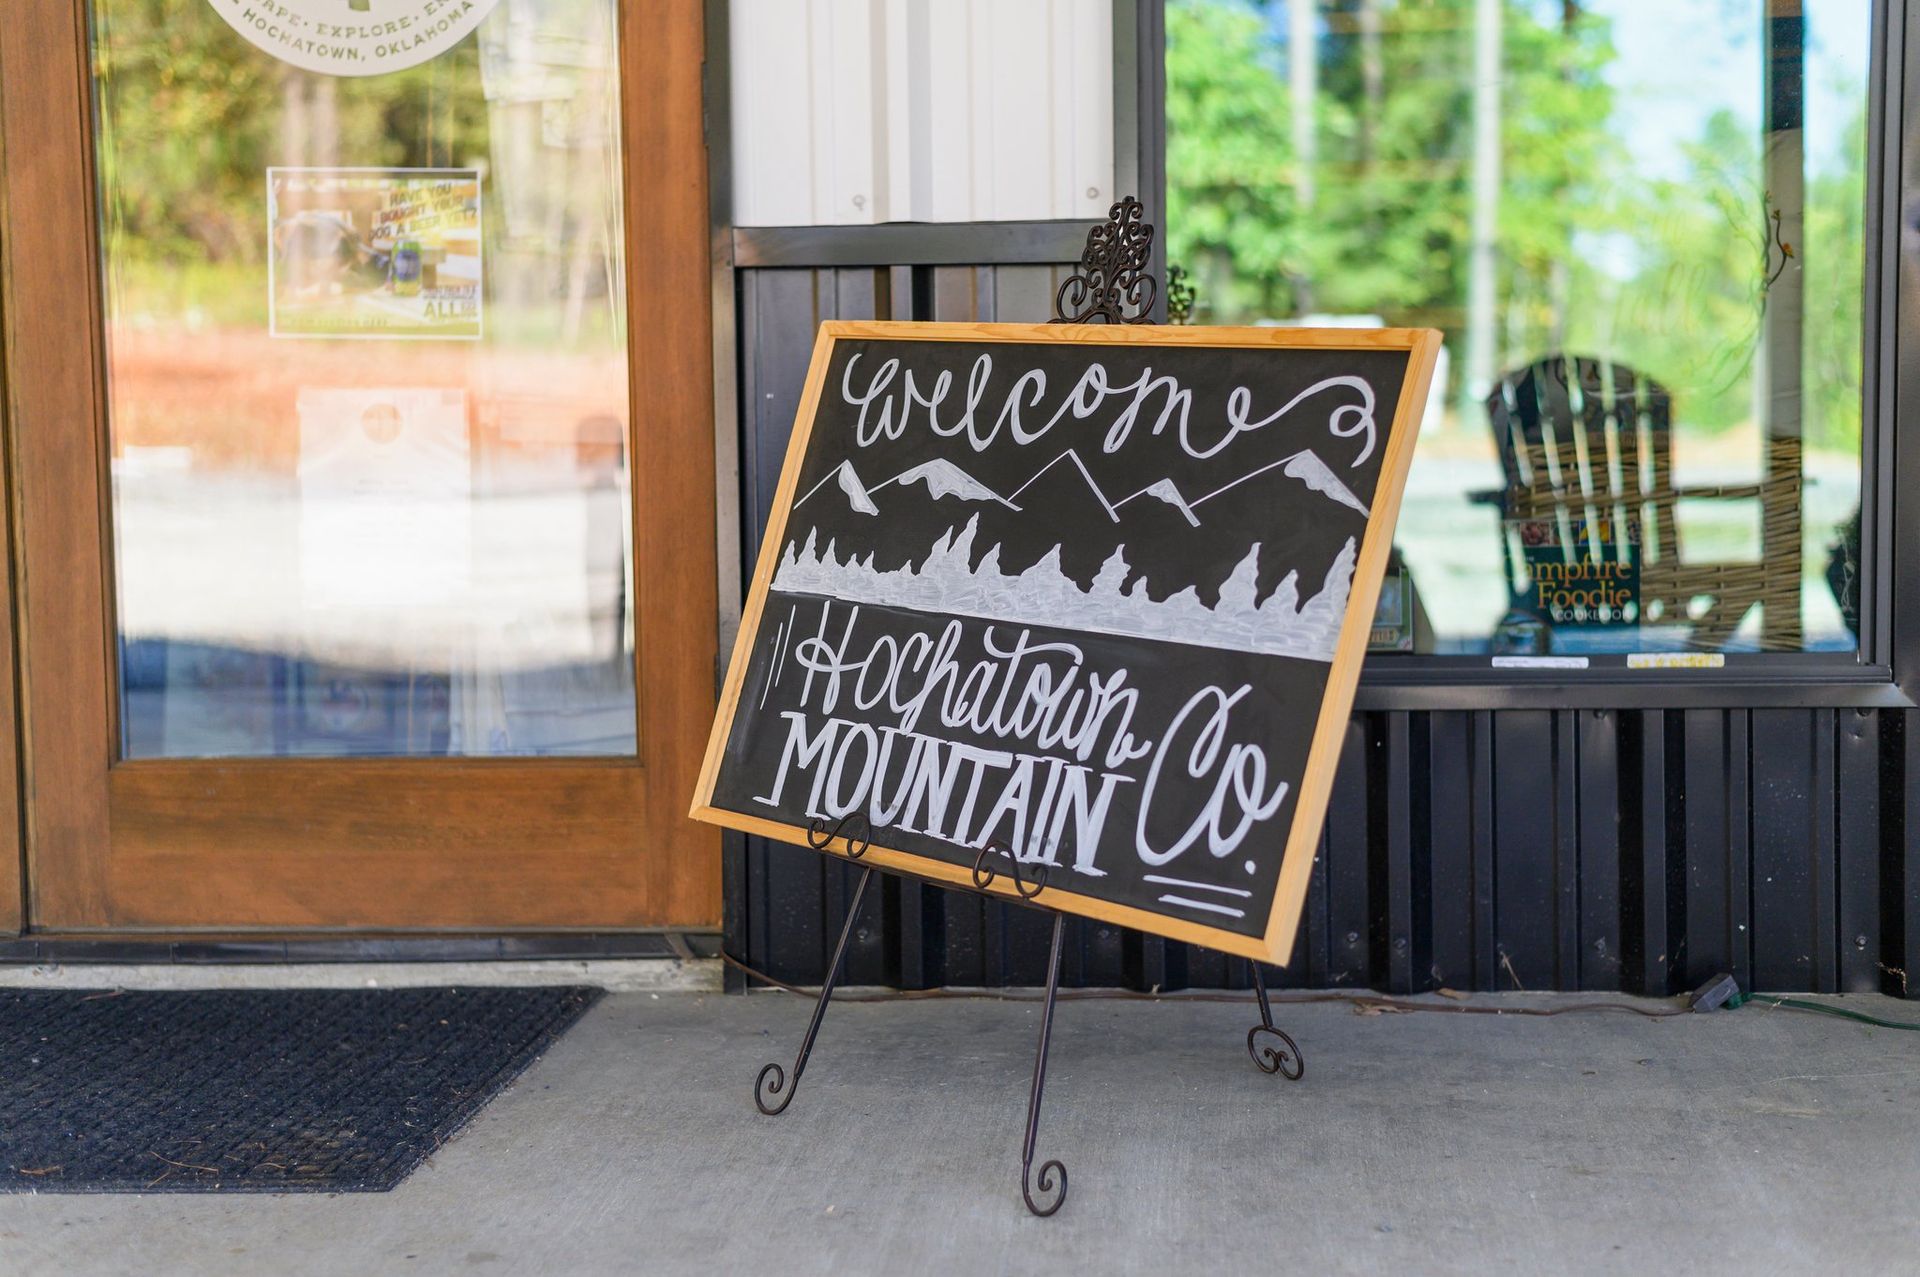 EXPLORE
HOCHATOWN, OKLAHOMA
HAVE YOU
BOUGHT YOUR
DOG A BEER YET?
ALL
Welcome
Hochatown
MOUNTAIN Co.
Campfire
Foodie
COOKBOOK